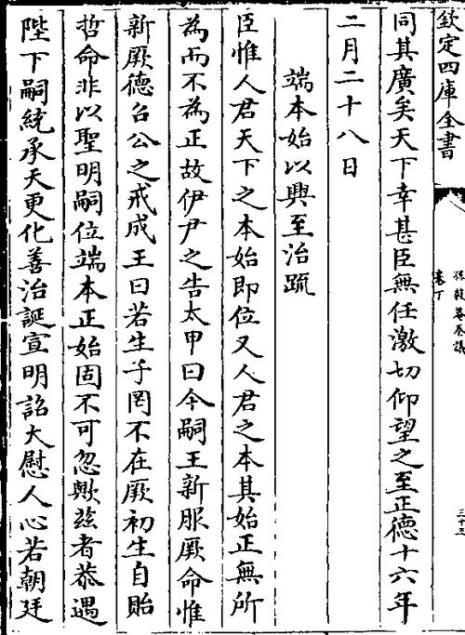 欽定四庫全書
卷下
三十三
同其廣矣天下幸甚臣無任激切仰望之至正德十六年
二月二十八日
端本始以興至治疏
臣惟人君天下之本始即位又人君之本其始正無所
為而不為正故伊尹之告太甲曰今嗣王新服厥命惟
新厥德召公之戒成王曰若生子罔不在厥初生自貽
哲命非以聖明嗣位端本正始固不可忽歟茲者恭遇
陛下嗣統承天更化善治誕宣明詔大慰人心若朝廷